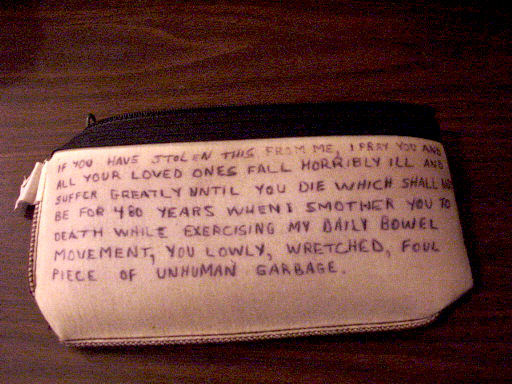 IF YOU HAVE STOLEN THIS FROM ME, I PRAY YOU AND
ALL YOUR LOVED ONES FALL HORRIBLY ILL AND
SUFFER GREATLY UNTIL YOU DIE WHICH SHALL NOT
BE FOR 480 YEARS WHEN I SMOTHER YOU TO
DEATH WHILE EXERCISING MY DAILY BOWEL
MOVEMENT, YOU LOWLY, WRETCHED, FOUL
PIECE OF UNHUMAN GARBAGE.